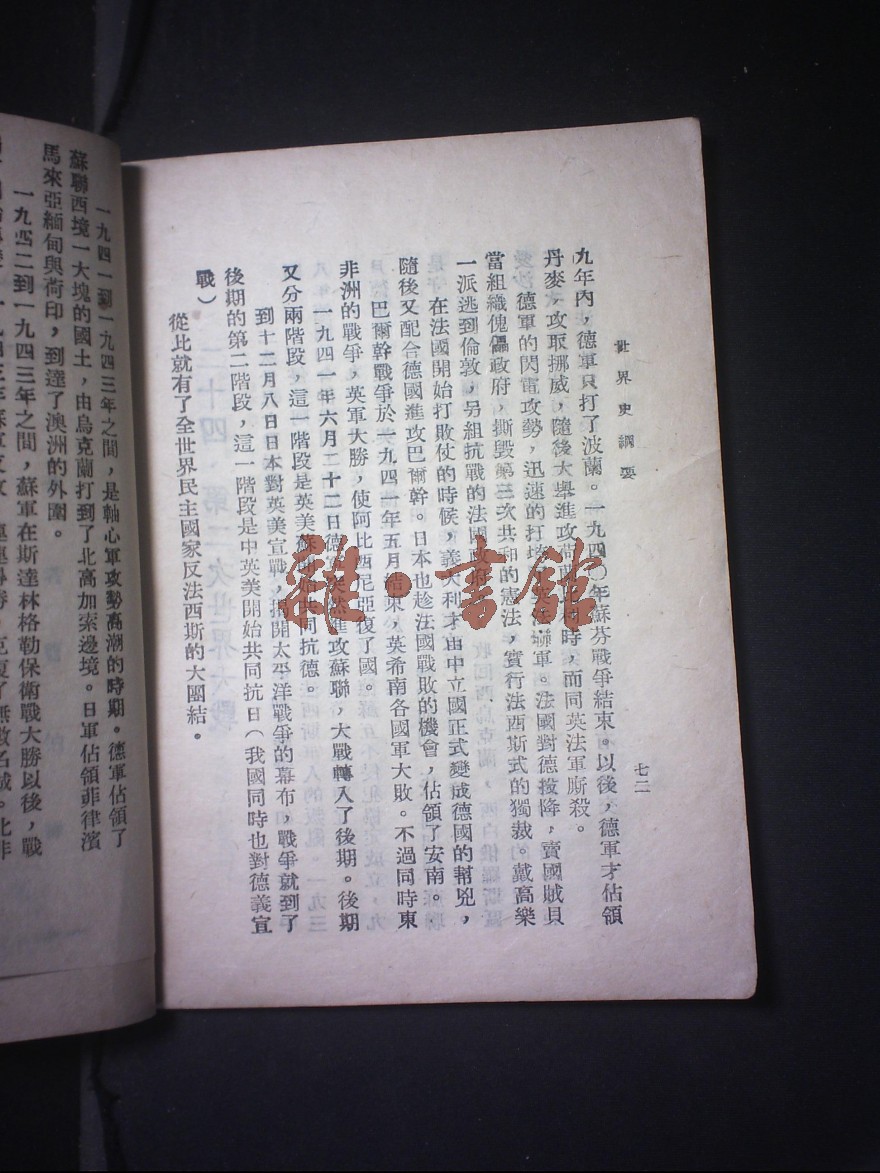 世界史綱要
七二
九年內，德軍只打了波蘭。一九四〇年蘇芬戰爭結束。以後，德軍才佔領
丹麥，攻取挪威，隨後大舉進攻荷時，而同英法軍廝殺。
德軍的閃電攻勢，迅速的打垮法聯軍。法國對德投降，賣國賊貝
當組織傀儡政府，撕毀第三次共和的憲法，實行法西斯式的獨裁。戴高樂
一派逃到倫敦，另組抗戰的法國政府
在法國開始打敗仗的時候，義大利才由中立國正式變成德國的幫兇，
隨後又配合德國進攻巴爾幹。日本也趁法國戰敗的機會，佔領了安南。
巴爾幹戰爭於一九四一年五月結束，英希南各國軍大敗。不過同時東
非洲的戰爭，英軍大勝，使阿比西尼亞復了國。
一九四一年六月二十二日德軍突然進攻蘇聯，大戰轉入了後期。後期
又分兩階段，這一階段是英美蘇開始共同抗德。
到十二月八日日本對英美宣戰，揭開太平洋戰爭的幕布，戰爭就到了
後期的第二階段，這一階段是中英美開始共同抗日（我國同時也對德義宣
戰）
從此就有了全世界民主國家反法西斯的大團結。
一九四一到一九四三年之間，是軸心軍攻勢高潮的時期。德軍佔領了
蘇聯西境一大塊的國土，由烏克蘭打到了北高加索邊境。日軍佔領菲律濱
馬來亞緬甸與荷印，到達了澳洲的外圍。
一九四二到一九四三年之間，蘇軍在斯達林格勒保衛戰大勝以後，戰
雜·書館